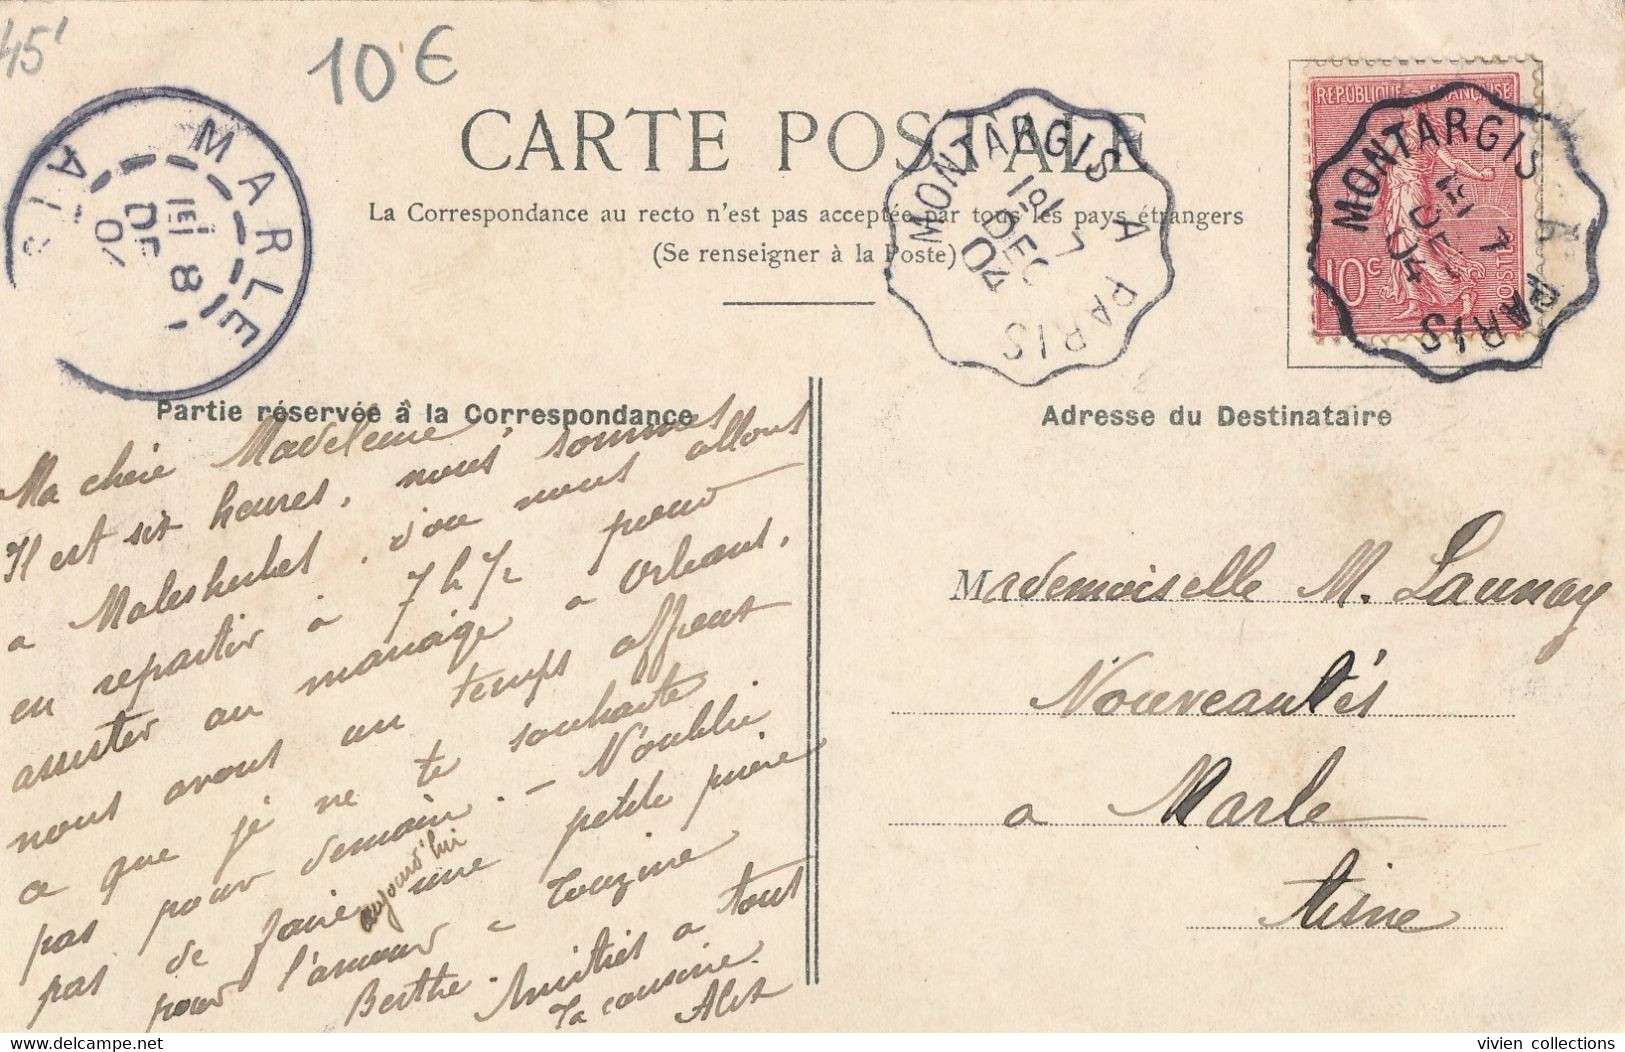 45'
10 €
CARTE POSTALE
La Correspondance au recto n'est pas acceptée par tous les pays étrangers
(Se renseigner à la Poste)
MARLE
AIS
8
DE
04
MONTARGIS A PARIS
1er
7
DEC
04
REPUBLIQUE FRANÇAISE
10c
POSTES
MONTARGIS
PARIS
Partie réservée à la Correspondance
Ma chère Madeleine,
Il est six heures, nous sommes
a Malesherbes, d'ou nous allons
en repartir à 7 h 1/2 pour
assister au mariage a Orleans,
nous avons un temps affreux
ce que je ne te souhaite
pas pour demain. – N'oublie
pas de faire une petite prière
aujourd'hui
pour l'amour
Berthe. Amitiés a tout
Ta cousine.
Alix
Adresse du Destinataire
Mademoiselle M. Launay
Nouveautés
a Marle
Aisne
vivien collections